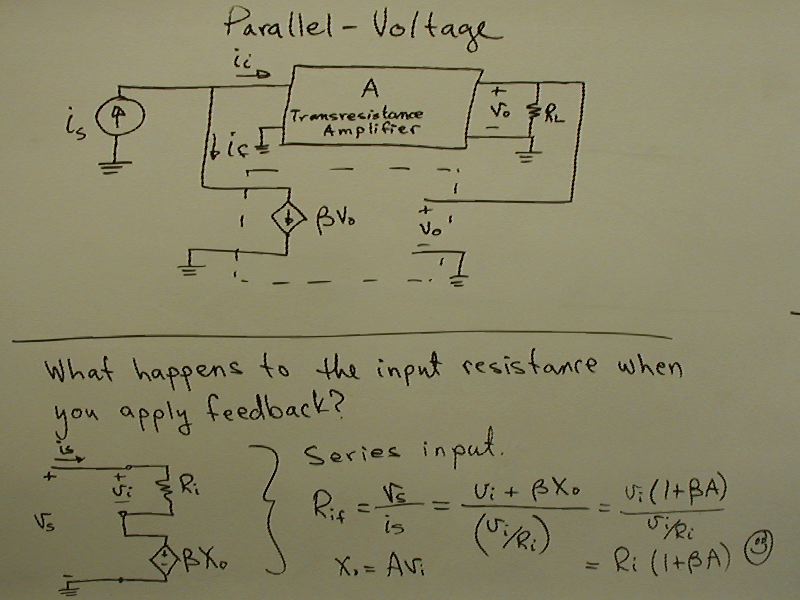 Parallel - Voltage
i_i
A
Transresistance
Amplifier
+
V_o
-
R_L
i_s
i_f
βV_o
+
V_o
-
What happens to the input resistance when
you apply feedback?
Series input.
i_s
+
+
v_i
-
R_i
V_s
-
+
-
βX_o
R_if = V_s / i_s = (v_i + βX_o) / (v_i/R_i) = v_i (1+βA) / (v_i/R_i)
X_o = Av_i
= R_i (1+βA)